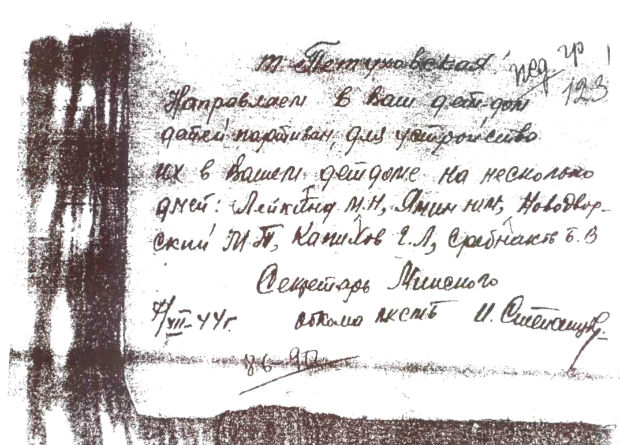 т. Петуховская
пед гр
123
Направляем в Ваш дет-дом
детей партизан, для устройства
их в Вашем детдоме на несколько
дней: Лейкинд М.Н, Ямин Н.М, Новодвор-
ский М.П, Капилов Г.Л, Сребник Б.В
Секретарь Минского
7/VII-44г. обкома лксмб И.
86